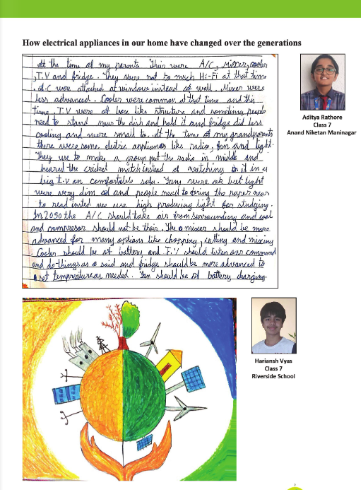 How electrical appliances in our home have changed over the generations
At the time of my parents their were A/C, Mixer, cooler
, T.V and fridge. They were not so much Hi-Fi at that time
A.C were attached at windows instead of wall. Mixer were
less advanced. Cooler were common at that time and the
time, T.V were of box like structure and sometimes people
need to stand near the dish and hold it and fridge did less
cooling and were small to. At the time of my grandparents
there were some electric appliances like radio, fan and light.
They use to make a group put the radio in middle and
heared the cricket match instead of watching it in a
big t.v on comfortable sofa. Fans were ok but light
were very dim and people need to bring the paper near
to read insted we use high producing light for studying.
In 2050 the A/C should take air from surrounding and cool
and compressor should not be their. The mixer should be more
advanced for many options like chopping, cutting and mixing
Cooler should be of battery and T.V should listen our command
and do things as u said and fridge should be more advanced to
set temperature as needed. Fan should be of battery charging
Aditya Rathore
Class 7
Anand Niketan Maninagar
Hariansh Vyas
Class 7
Riverside School